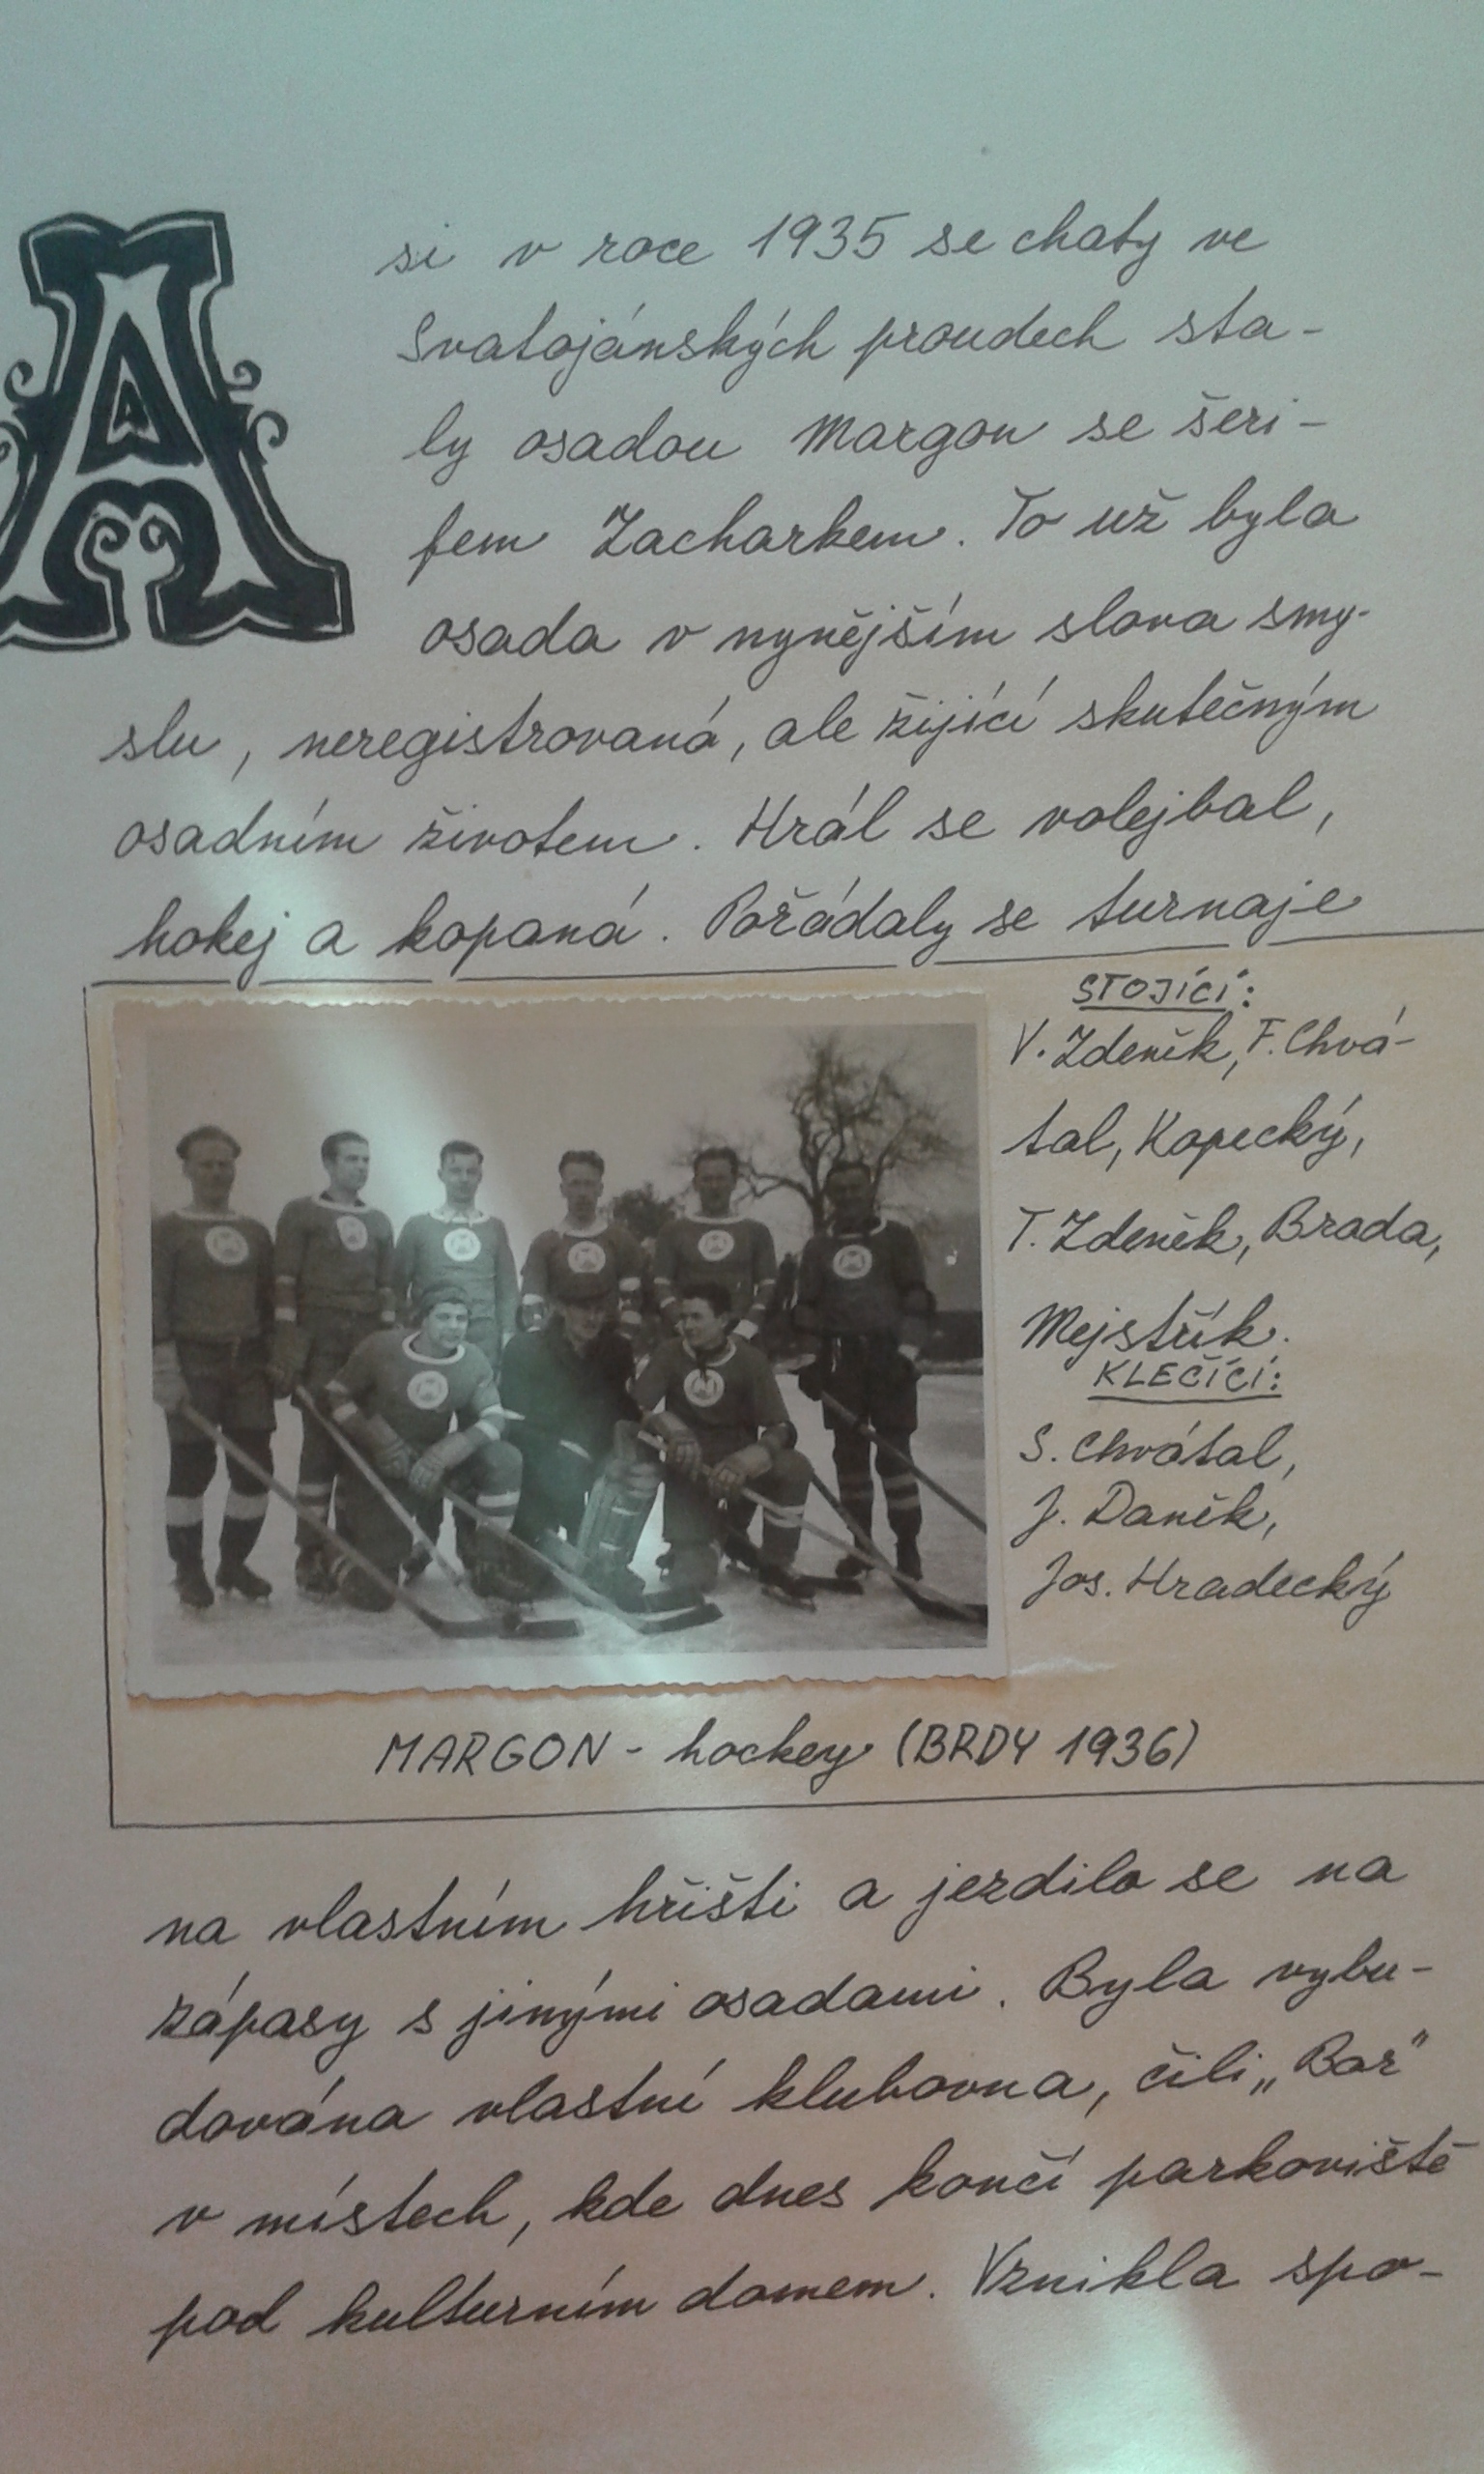 Asi v roce 1935 se chaty ve
Svatojánských proudech sta-
ly osadou Margon se šeri-
fem Zacharkem. To už byla
osada v nynějším slova smy-
slu, neregistrovaná, ale žijící skutečným
osadním životem. Hrál se volejbal,
hokej a kopaná. Pořádaly se turnaje
STOJÍCÍ:
V. Zdeněk, F. Chvá-
tal, Kopecký,
T. Zdeněk, Brada,
Mejstřík.
KLEČÍCÍ:
S. Chvátal,
J. Daněk,
Jos. Hradecký
MARGON - hockey (BRDY 1936)
na vlastním hřišti a jezdilo se na
zápasy s jinými osadami. Byla vybu-
dována vlastní klubovna, čili „Bar"
v místech, kde dnes končí parkoviště
pod kulturním domem. Vznikla spo-